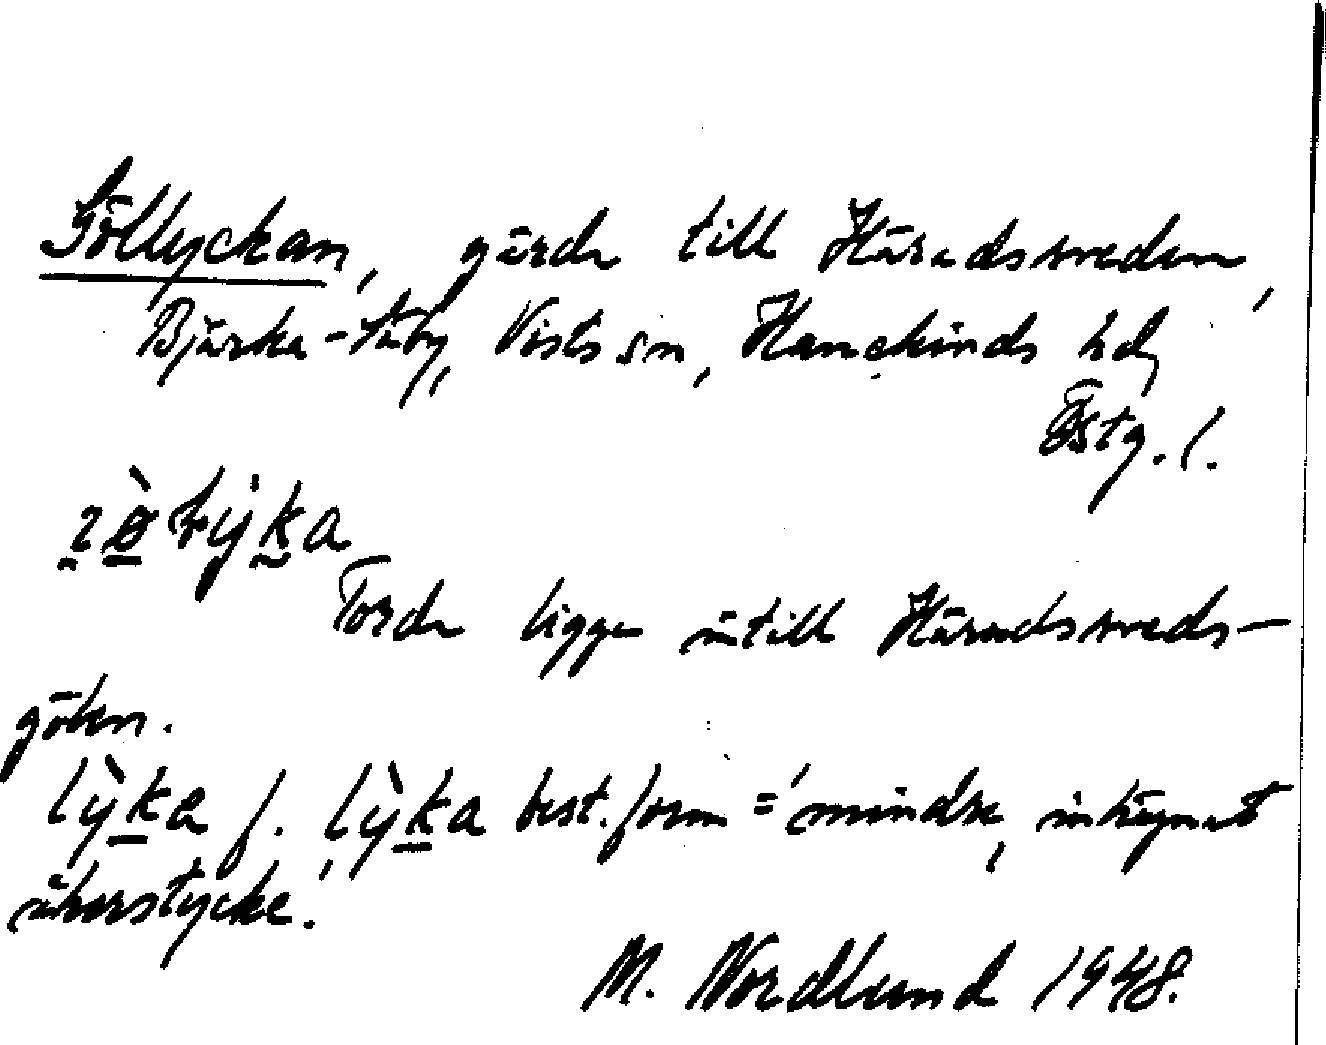 Göllyckan, gärde till Häradssveden,
Bjärka-Säby, Vists sn, Hanekinds hd,
Östg. l.
Torde ligga intill Häradssveds-
gölen.
lỳka f. lỳka best. form = 'mindre, inhägnat
åkerstycke.'
M. Nordlund 1948.